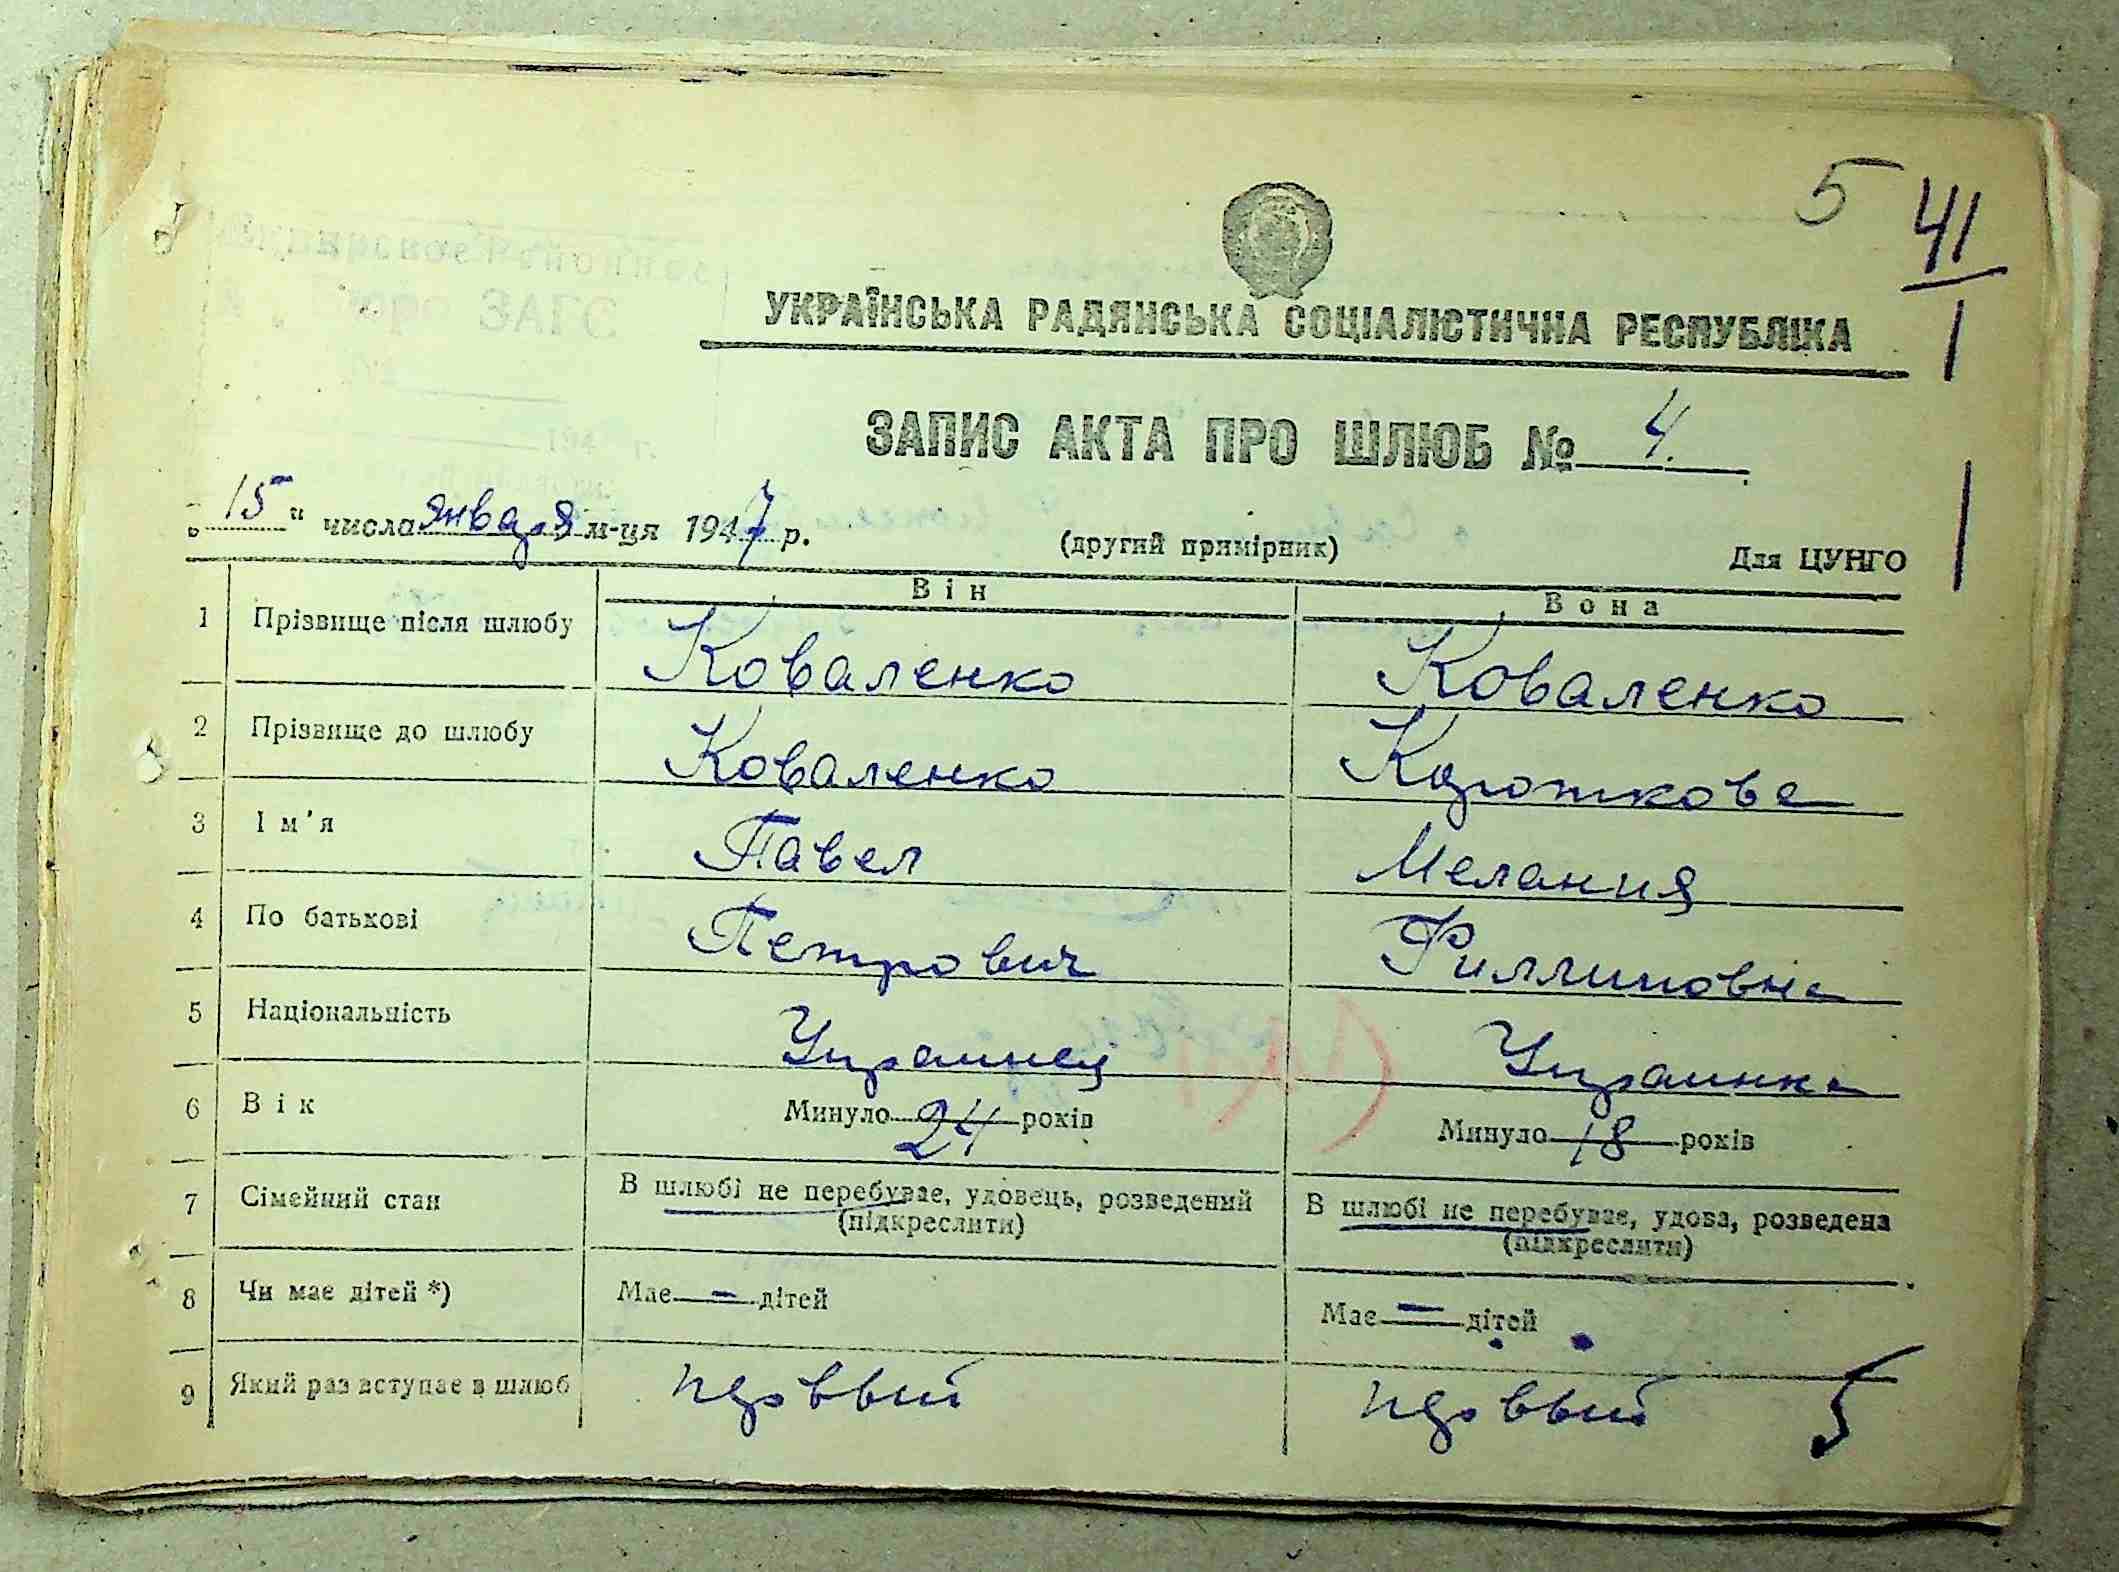 5 41
УКРАЇНСЬКА РАДЯНСЬКА СОЦІАЛІСТИЧНА РЕСПУБЛІКА
ЗАПИС АКТА ПРО ШЛЮБ № 4.
„15" числа января м-ця 1947 р. (другий примірник) Для ЦУНГО
Він Вона
1 Прізвище після шлюбу Коваленко Коваленко
2 Прізвище до шлюбу Коваленко Короткова
3 Ім'я Павел Мелания
4 По батькові Петрович Филлиповна
5 Національність Украинец Украинка
6 Вік Минуло 24 років Минуло 18 років
7 Сімейний стан В шлюбі не перебуває, удовець, розведений В шлюбі не перебуває, удова, розведена
(підкреслити) (підкреслити)
8 Чи має дітей *) Має — дітей Має — дітей
9 Який раз вступає в шлюб первый первый
5